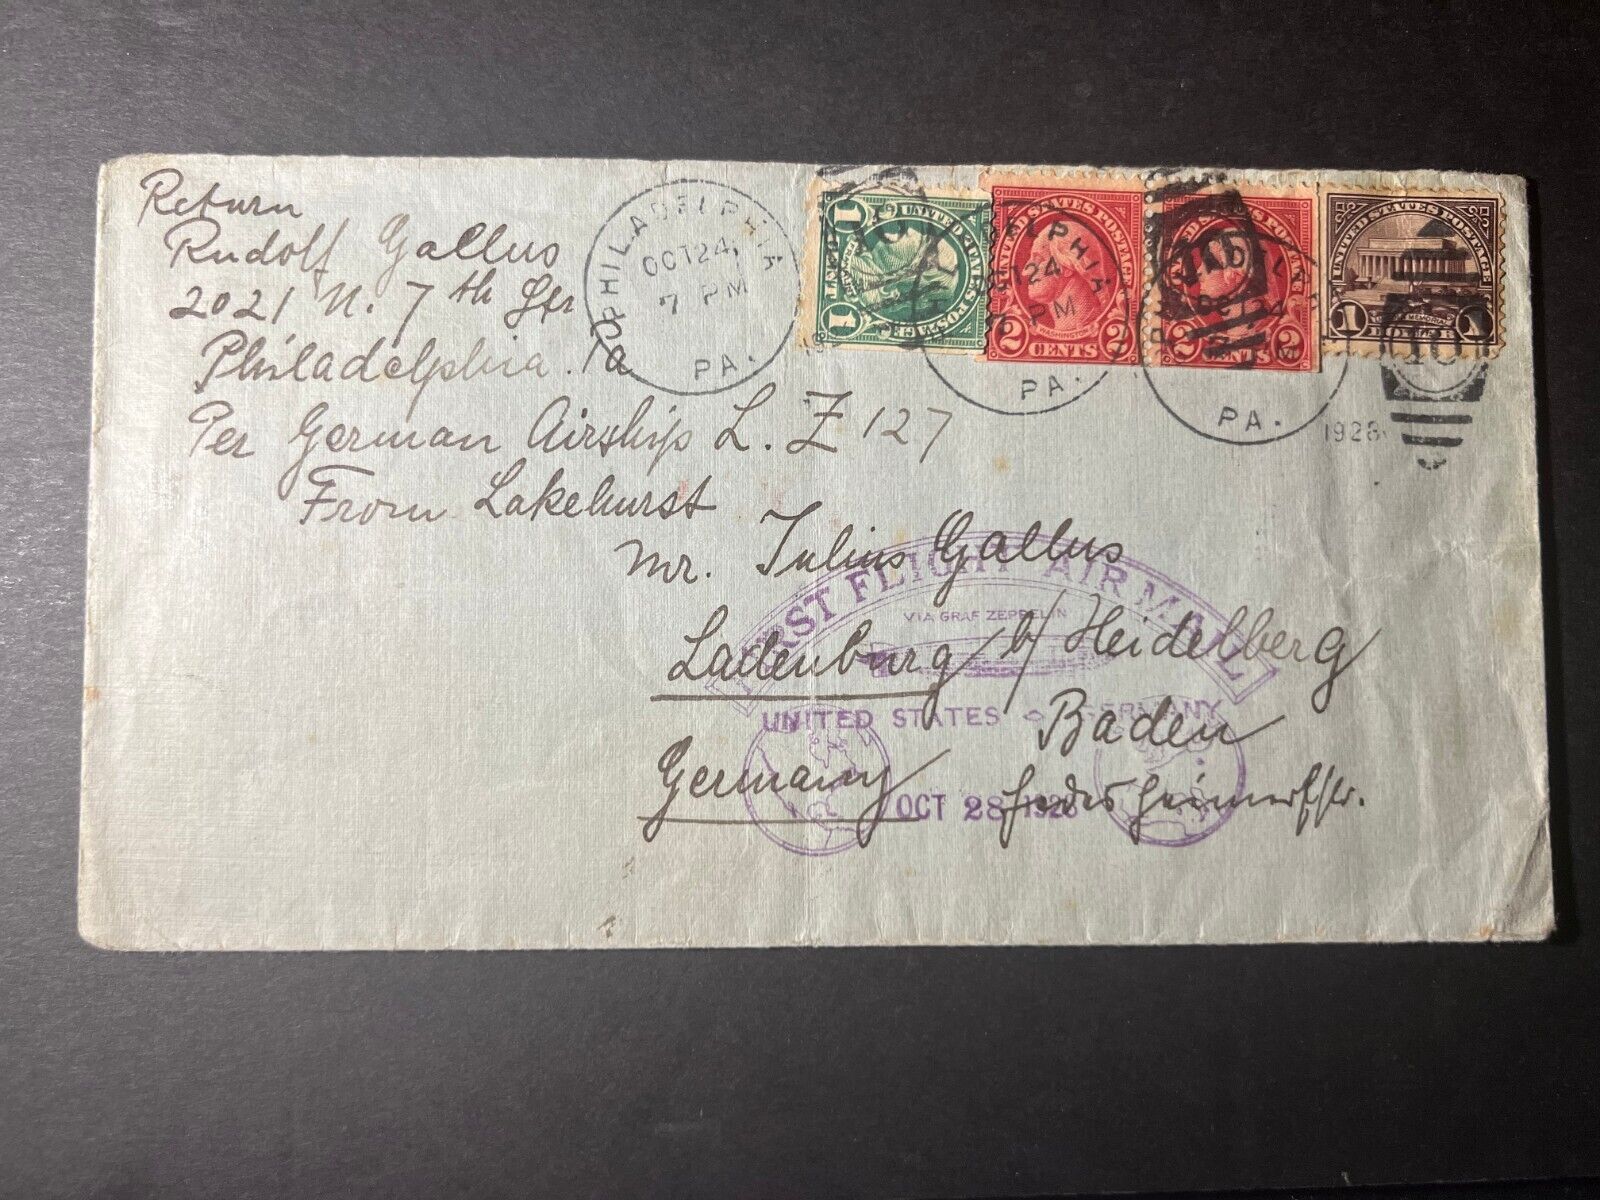 Return
Rudolf Gallus
2021 N. 7th Str
Philadelphia. Pa
Per German Airship L. Z 127
From Lakehurst
PHILADELPHIA
OCT 24,
7 PM
PA.
UNITED STATES POSTAGE
1 1
PHIA
OCT 24
PM
PA.
UNITED STATES POSTAGE
WASHINGTON
2 CENTS 2
PA.
2 CENTS 2
UNITED STATES POSTAGE
MEMORIAL
1 DOLLAR 1
1928
Mr. Julius Gallus
Ladenburg b/ Heidelberg
Baden
Germany
FIRST FLIGHT AIR MAIL
VIA GRAF ZEPPELIN
UNITED STATES GERMANY
OCT 28 1928